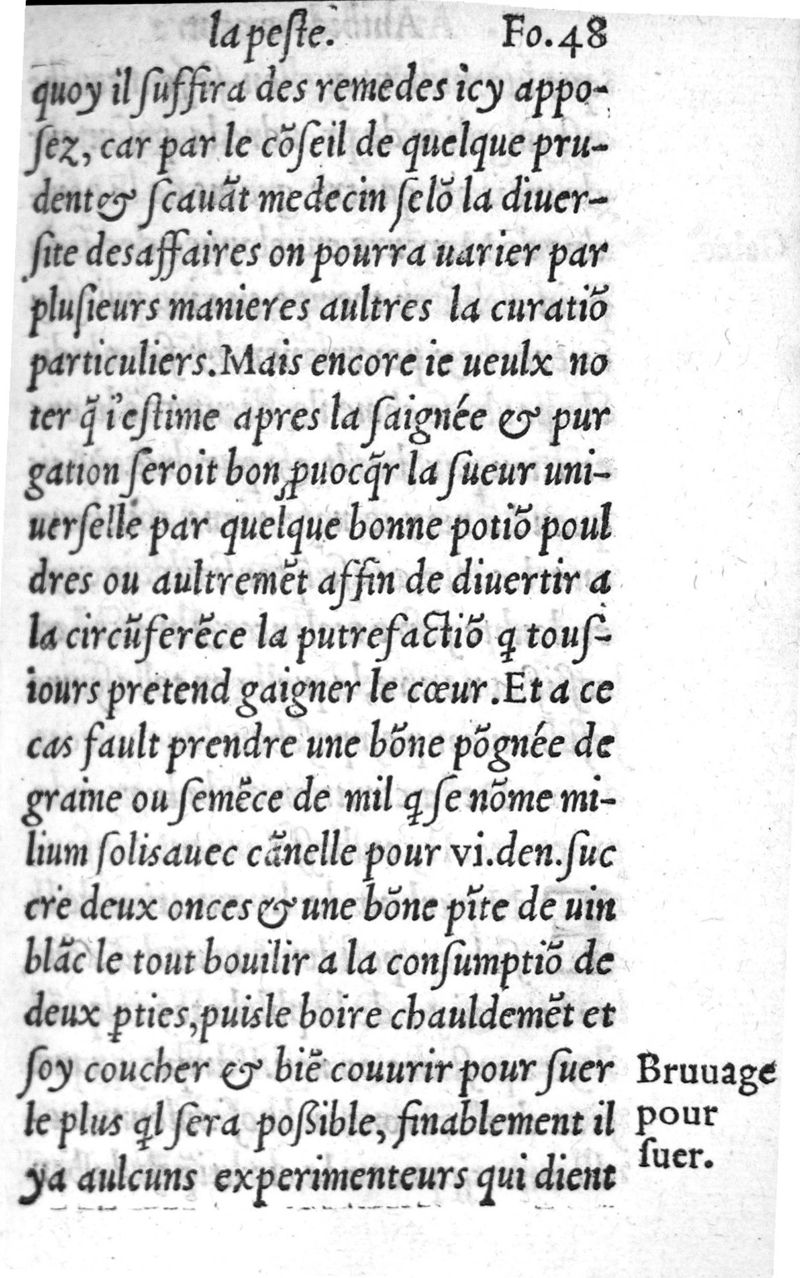 la peſte. Fo. 48
quoy il ſuffira des remedes icy appo-
ſez, car par le cõſeil de quelque pru-
dent & ſcauãt medecin ſelõ la diuer-
ſite des affaires on pourra uarier par
pluſieurs manieres aultres la curatiõ
particuliers. Mais encore ie ueulx no
ter q̃ i'eſtime apres la ſaignée & pur
gation ſeroit bon ꝓuocq̃r la ſueur uni-
uerſelle par quelque bonne potiõ poul
dres ou aultremẽt affin de diuertir a
la circũferẽce la putrefactiõ ꝗ touſ-
iours pretend gaigner le cœur. Et a ce
cas fault prendre une bõne põgnée de
graine ou ſemẽce de mil ꝗ ſe nõme mi-
lium ſolis auec cãnelle pour vi. den. ſuc
cre deux onces & une bõne pĩte de uin
blãc le tout bouilir a la conſumptiõ de
deux ꝑties, puis le boire chauldemẽt et
ſoy coucher & biẽ couurir pour ſuer
le plus ꝗl ſera poſſible, finablement il
ya aulcuns experimenteurs qui dient
Bruuage
pour
ſuer.